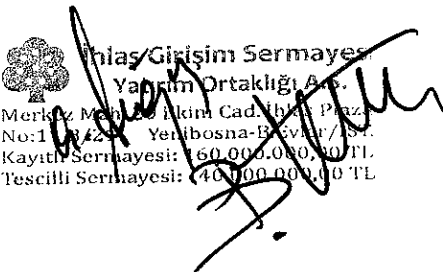 İhlas Girişim Sermayesi
Yatırım Ortaklığı A.Ş.
Merkez Mah. Ekim Cad. İhlas Plaza
Yenibosna-B.Evler/İST.
Kayıtlı Sermayesi: 160.000.000,00 TL
Tescilli Sermayesi: 40.000.000,00 TL